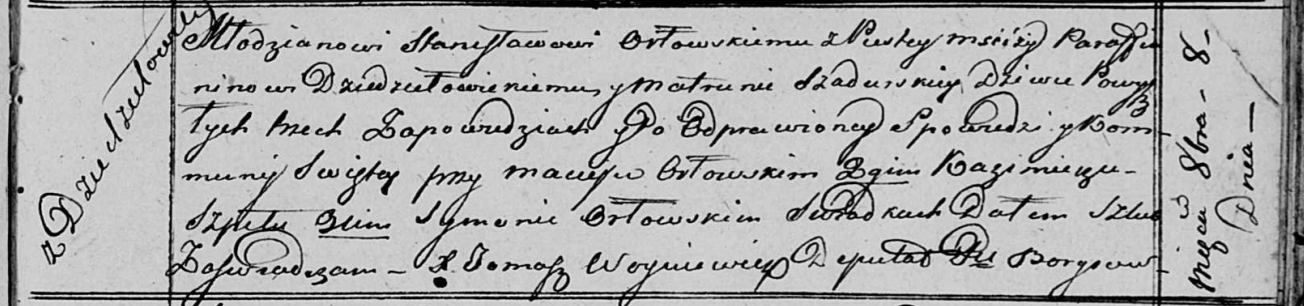 z Dziedzułowicz
Młodzianowi Stanisławowi Orłowskiemu z Pustey Mściży Parafia
ninowi Dziedzułowickiemu, y Matrunie Szadurskiey Dziwce Powyż
łych trzech Zapowiedziach y po Odprawioney Spowiedzi y Kom-
munij Swiętey przy Macieju Orłowskim 2gim Kazimierzu-
Szpetu 3cim Symonie Orłowskim Swiadkach Dałem Szlub
Zaswiadczam - X. Tomasz Woyniewicz Deputat Ptu Borysow-
Miesiąca 8bra - 8 -
Dnia -